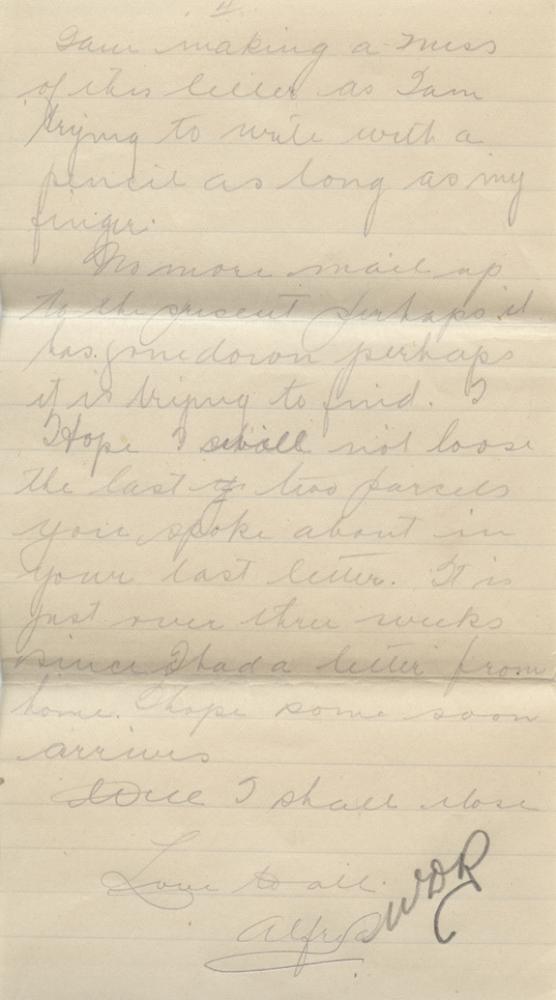 4
I am making a mess
of this letter as I am
trying to write with a
pencil as long as my
finger.
No more mail up
to the present perhaps it
has gone down perhaps
it is trying to find. I
Hope I shall not loose
the last two parcels
you spoke about in
your last letter. It is
just over three weeks
since I had a letter from
home. I hope some soon
arrives
Well I shall close
Love to all.
Alfred